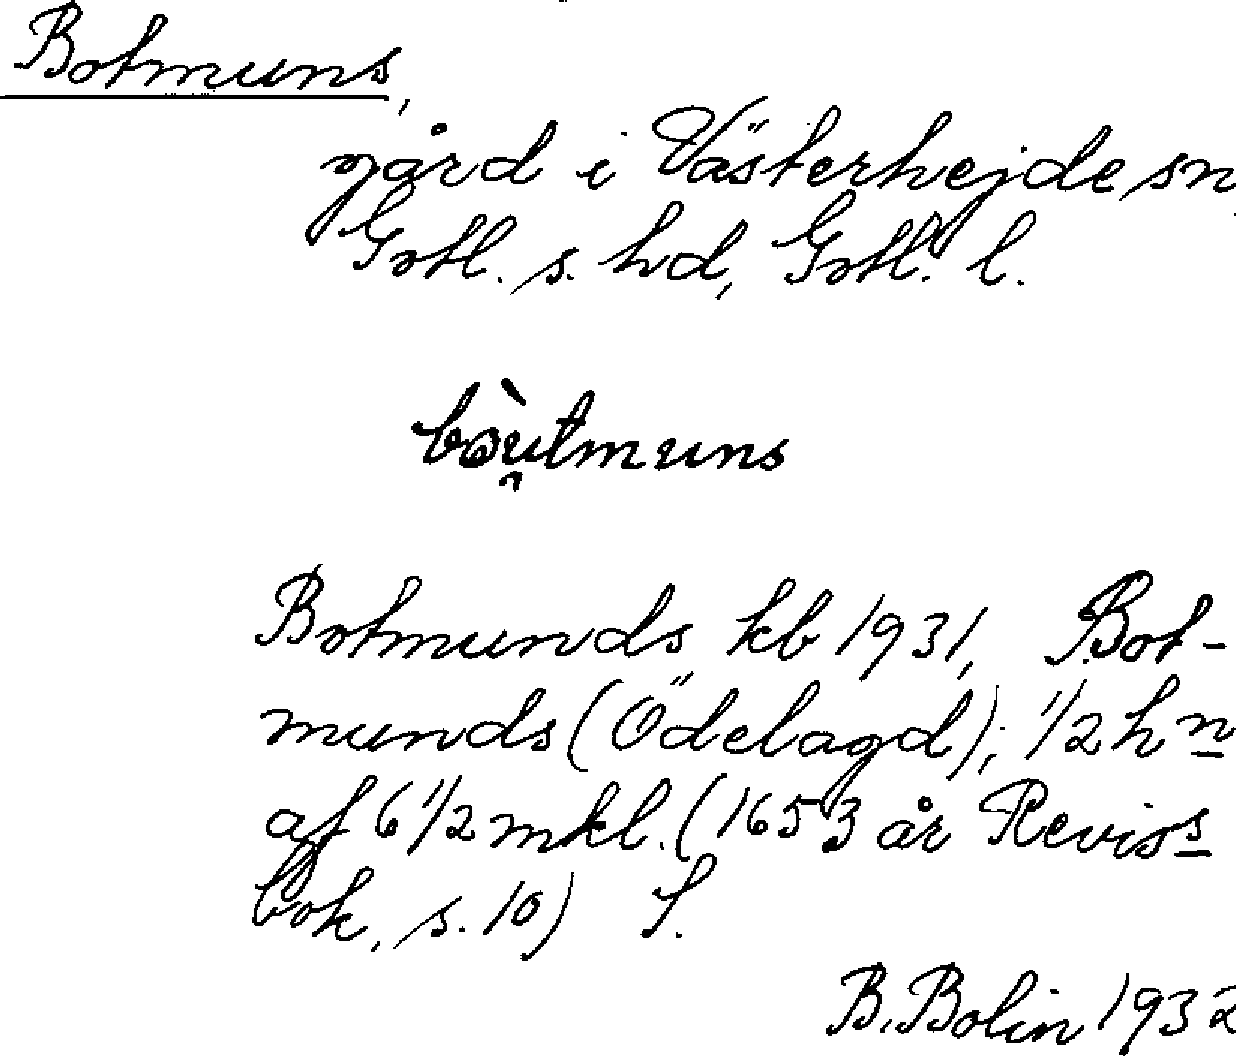 Botmuns,
gård i Västerhejde sn,
Gotl. s. hd, Gotl. l.
bòu̯tmuns
Botmunds kb 1931, Bot-
munds (Ödelagd); 1/2 hn
af 6 1/2 mkl. (1653 år Reviss
bok, s. 10) S.
B. Bolin 1932